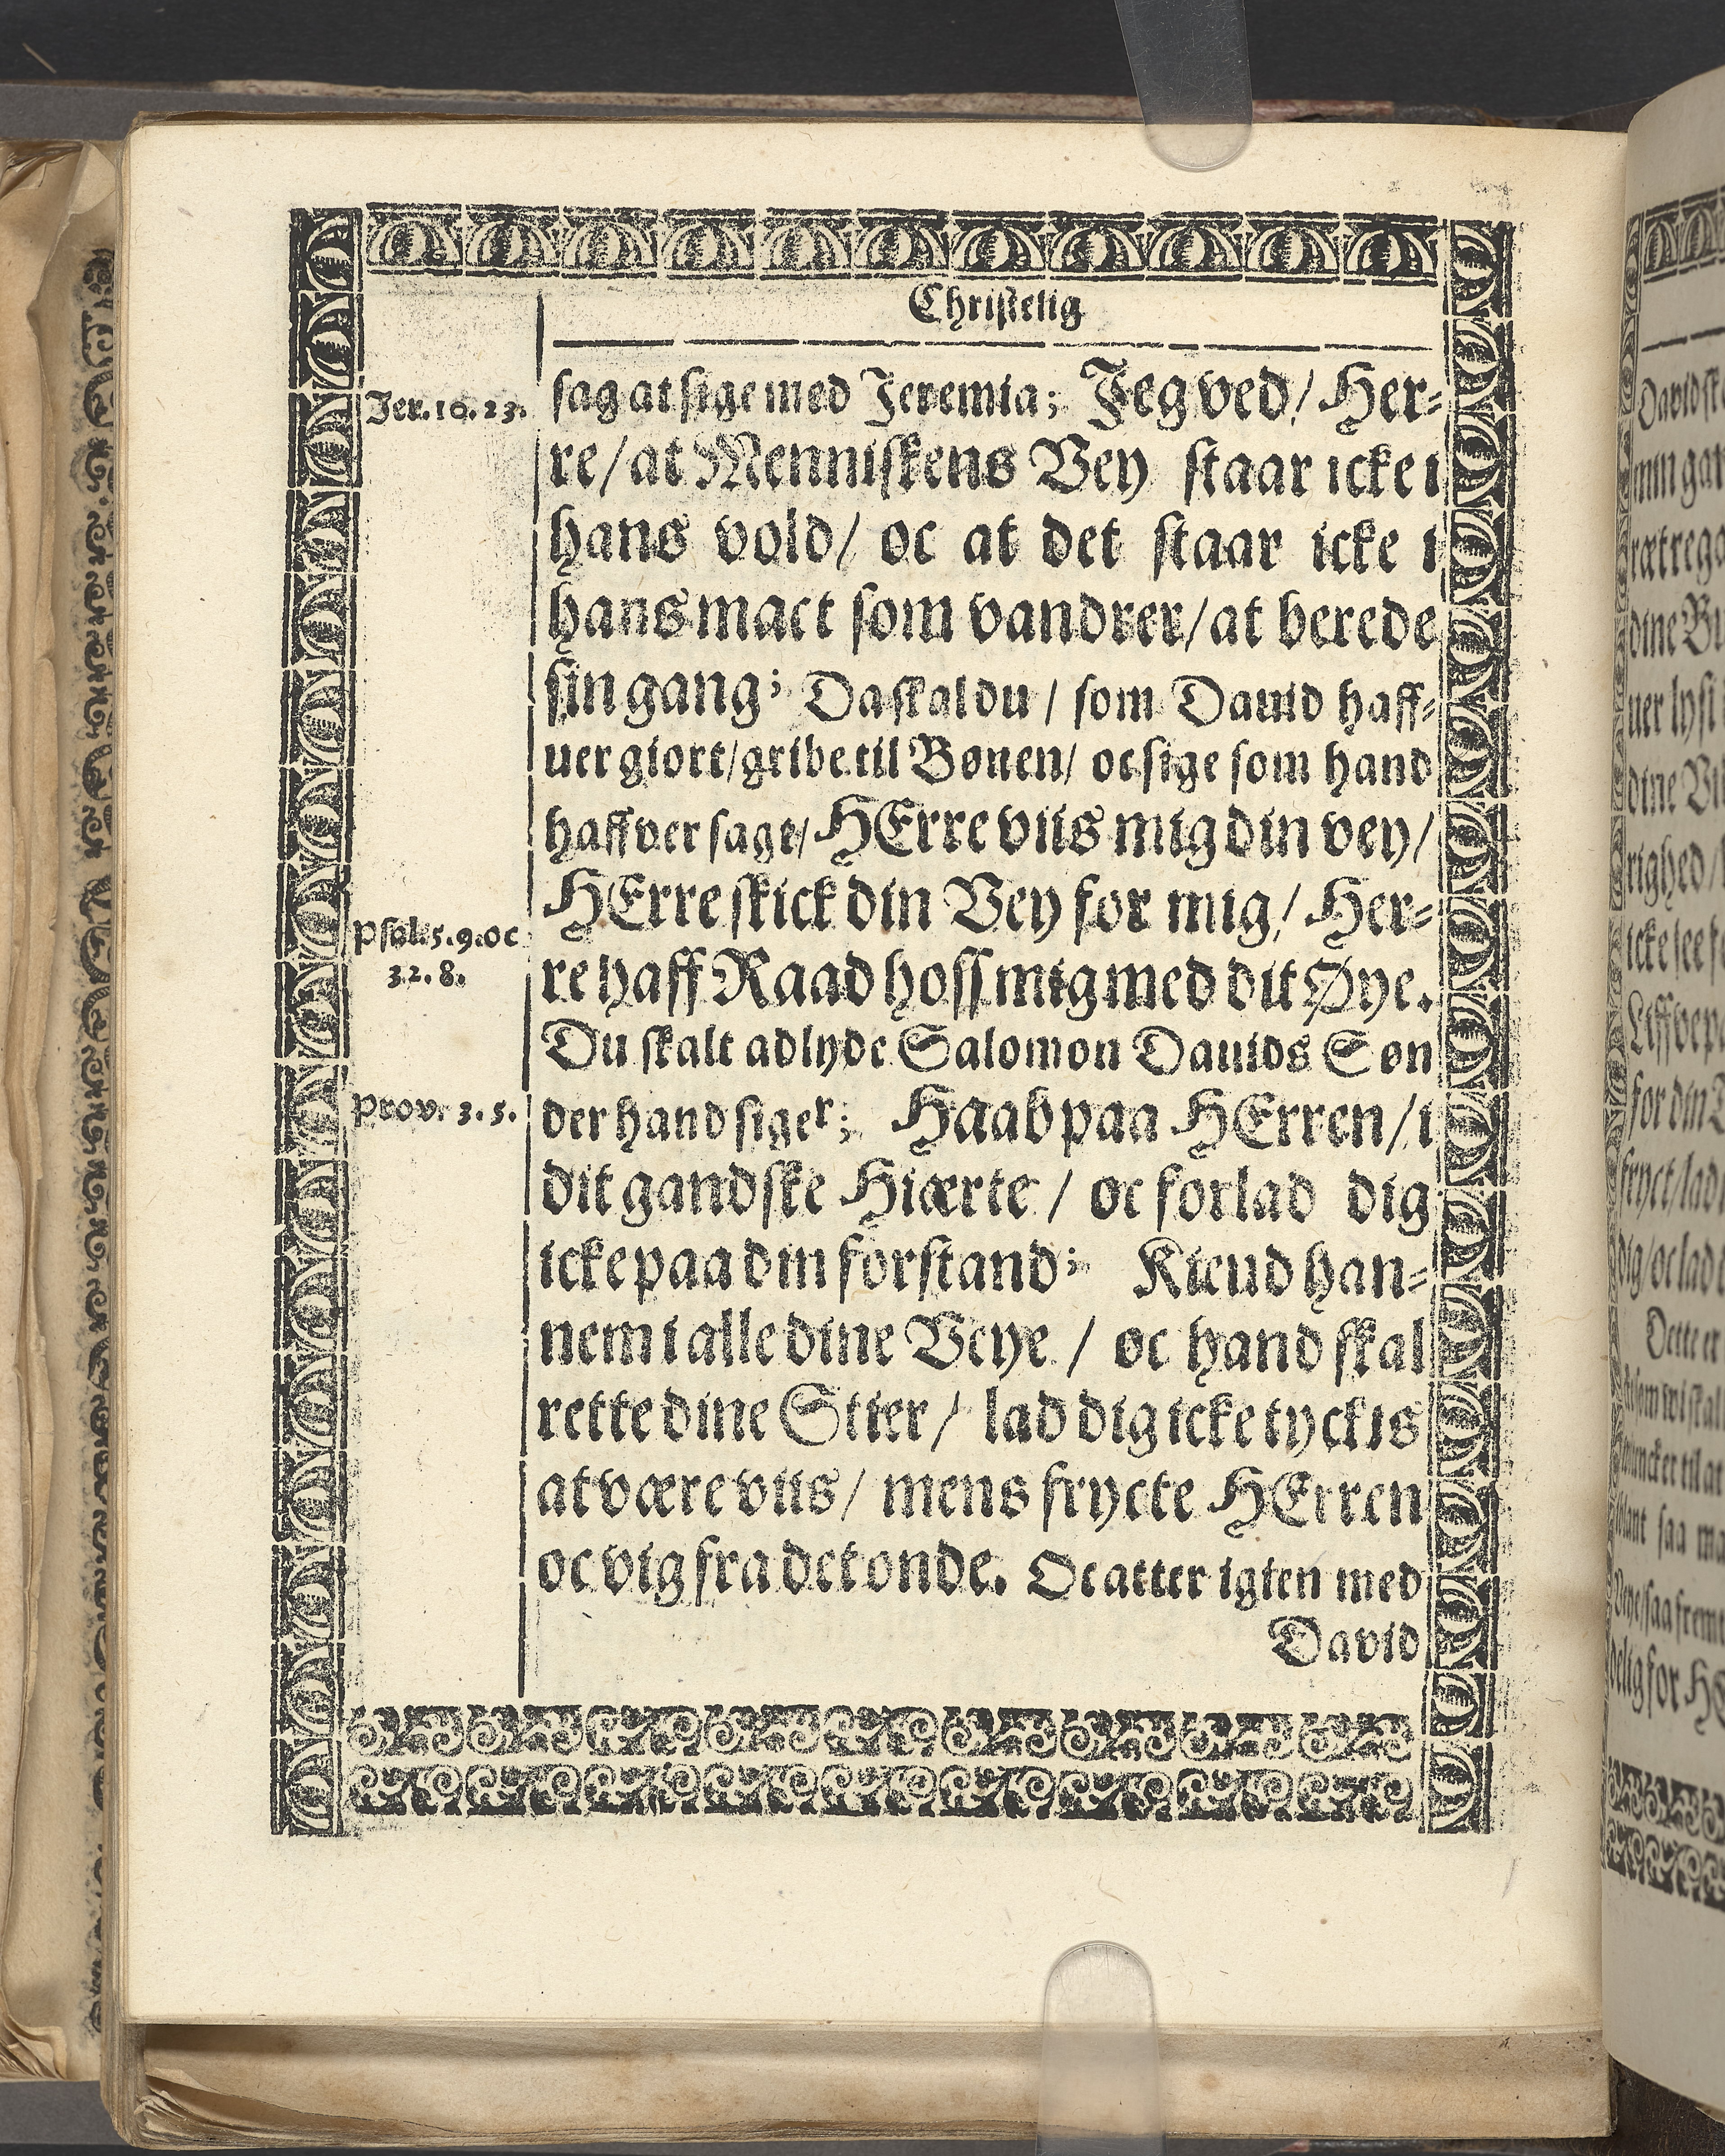 Christelig
Jer. 10. 23.
sag at sige med Jeremia; Jeg ved/ Her-
re/ at Menniskens Vey staar icke i
hans vold/ oc at det staar icke i
hans mact som vandrer/ at berede
sin gang; Da skal du/ som David haff-
uer giort/ gribe til Bønen/ oc sige som hand
haffver sagt/ HErre viis mig din vey/
HErre skick din Vey for mig/ Her-
Psal. 5. 9. oc
32. 8.
re haff Raad hoss mig med dit Øye.
Du skalt adlyde Salomon Dauids Søn
Prov. 3. 5.
der hand siger; Haab paa HErren/ i
dit gandske Hiærte/ oc forlad dig
icke paa din forstand; Kiend han-
nem i alle dine Veye/ oc hand skal
rette dine Stier/ lad dig icke tyckis
at være viis/ mens frycte HErren
oc vig fra det onde. Oc atter igien med
David
Davids
min gan
ræt
dine
uer lys
dine
righed/
icke
for din
fryct/ lad
dig/ oc lad
Dette er
til at
saa
for HE